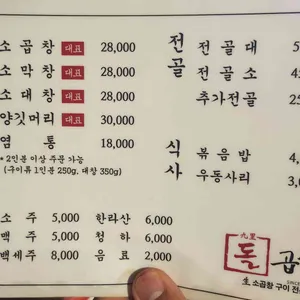 소 곱 창 대표 28,000
소 막 창 대표 28,000
소 대 창 대표 28,000
양깃머리 대표 30,000
염 통 18,000
* 2인분 이상 주문 가능
(구이류 1인분 250g, 대창 350g)
소 주 5,000
맥 주 5,000
백세주 8,000
한라산 6,000
청 하 6,000
음 료 2,000
전골
전 골 대 5
전 골 소 4
추가전골 2
식사
볶 음 밥 4,
우동사리 3,
九里
돌
곱
生 소곱창 구이 전